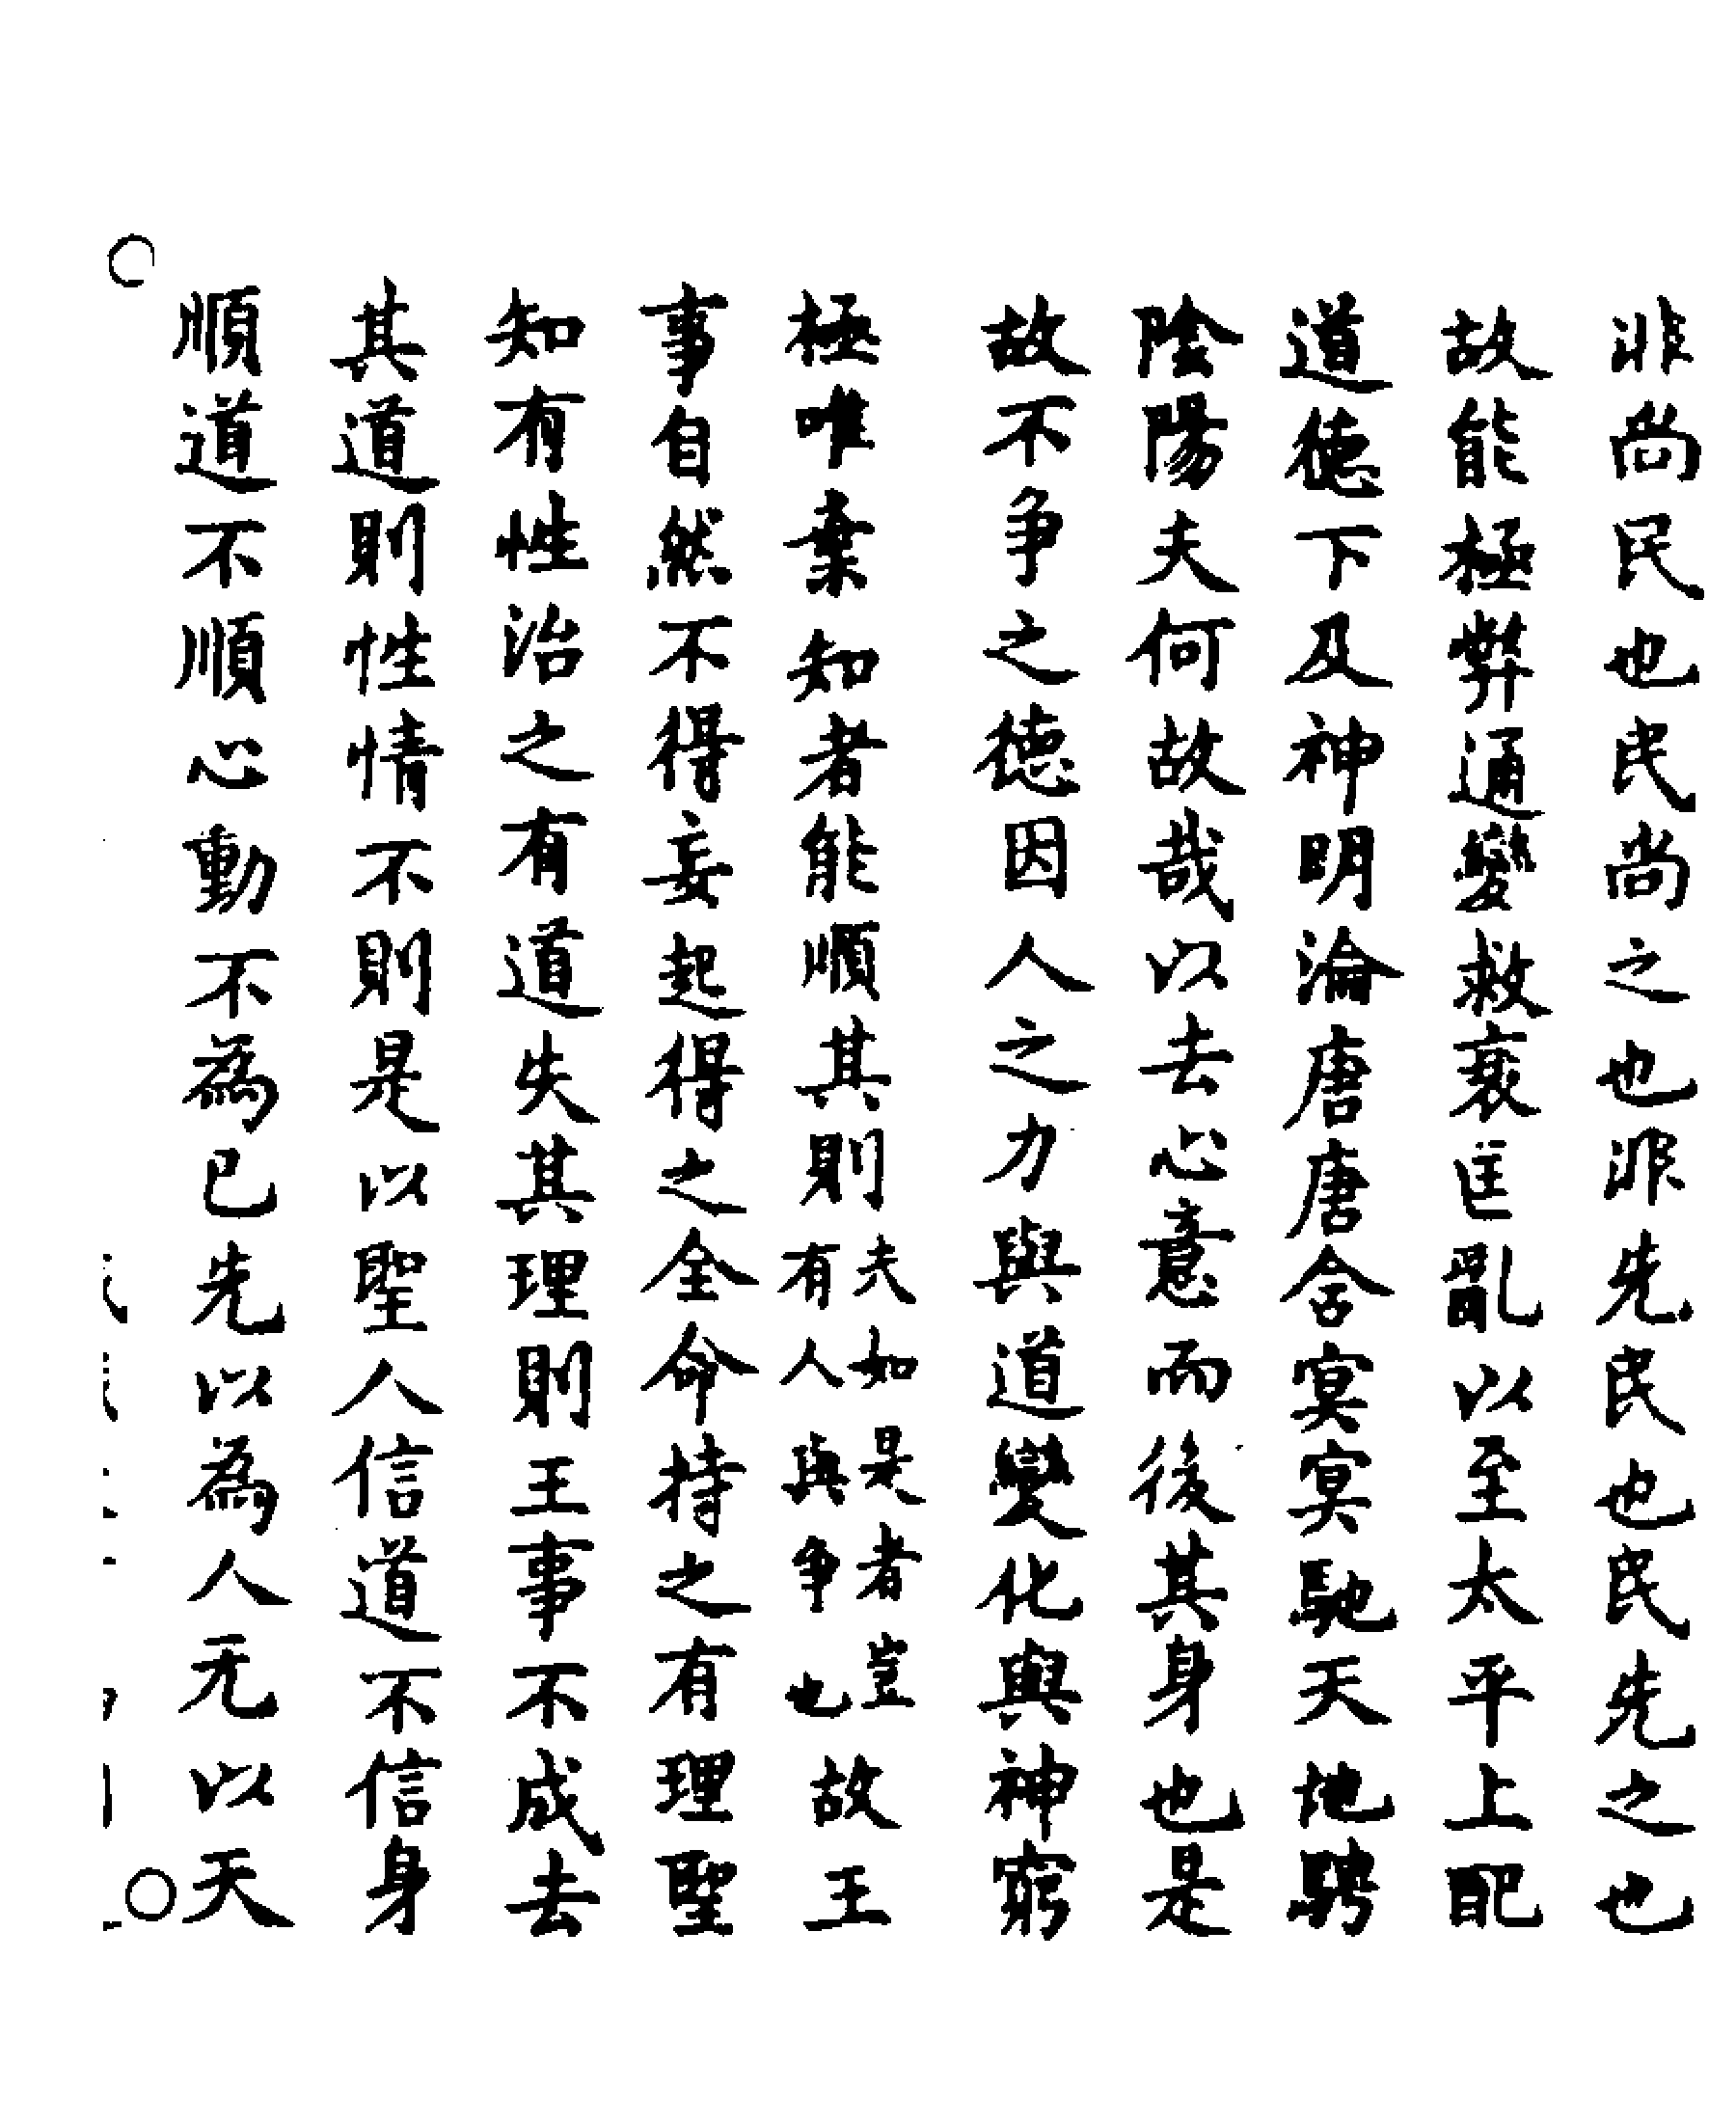 非尚民也民尚之也非先民也民先之也
故能極弊通變救衰匡亂以至太平上配
道德下及神明淪唐唐含冥冥馳天地騁
陰陽夫何故哉以去心意而後其身也是
故不争之德因人之力與道變化與神窮
極唯棄知者能順其則夫如是者豈有人與争也故王
事自然不得妄起得之全命持之有理聖
知有性治之有道失其理則王事不成去
其道則性情不則是以聖人信道不信身
順道不順心動不為已先以為人无以天